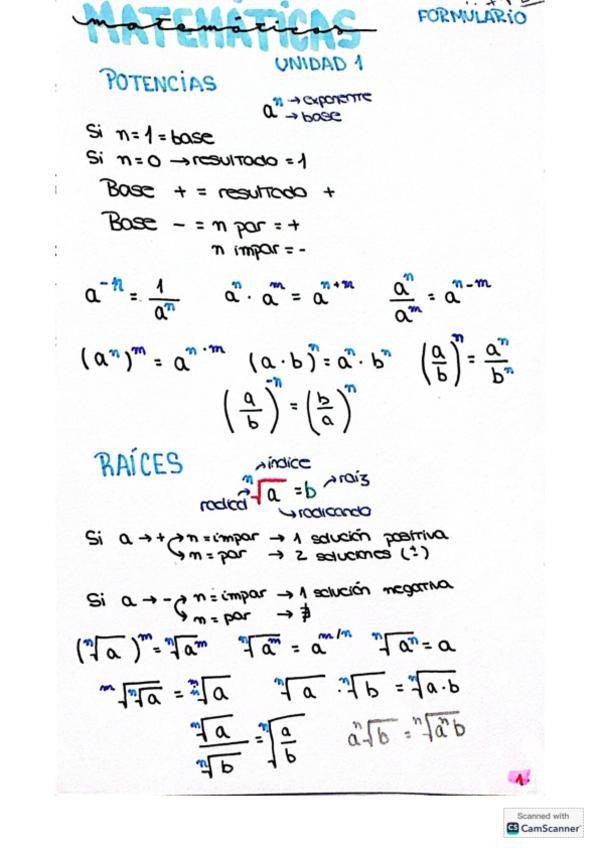 MATEMÁTICAS
matemáticas
FORMULARIO
UNIDAD 1
POTENCIAS
aⁿ → exponente
→ base
Si n=1=base
Si n=0 → resultado = 1
Base + = resultado +
Base - = n par = +
n impar = -
a⁻ⁿ = 1/aⁿ   aⁿ · aᵐ = aⁿ⁺ᵐ   aⁿ/aᵐ = aⁿ⁻ᵐ
(aⁿ)ᵐ = aⁿ·ᵐ   (a·b)ⁿ = aⁿ·bⁿ   (a/b)ⁿ = aⁿ/bⁿ
(a/b)⁻ⁿ = (b/a)ⁿ
RAÍCES
índice
ⁿ√a = b → raíz
radical
radicando
Si a → + → n = impar → 1 solución positiva
→ n = par → 2 soluciones (±)
Si a → - → n = impar → 1 solución negativa
→ n = par → ∄
(ⁿ√a)ᵐ = ⁿ√aᵐ   ⁿ√aᵐ = aᵐ/ⁿ   ⁿ√aⁿ = a
ᵐ√ⁿ√a = ᵐ·ⁿ√a   ⁿ√a · ⁿ√b = ⁿ√a·b
ⁿ√a/ⁿ√b = ⁿ√a/b   aⁿ√b = ⁿ√aⁿb
1.
Scanned with
CS CamScanner